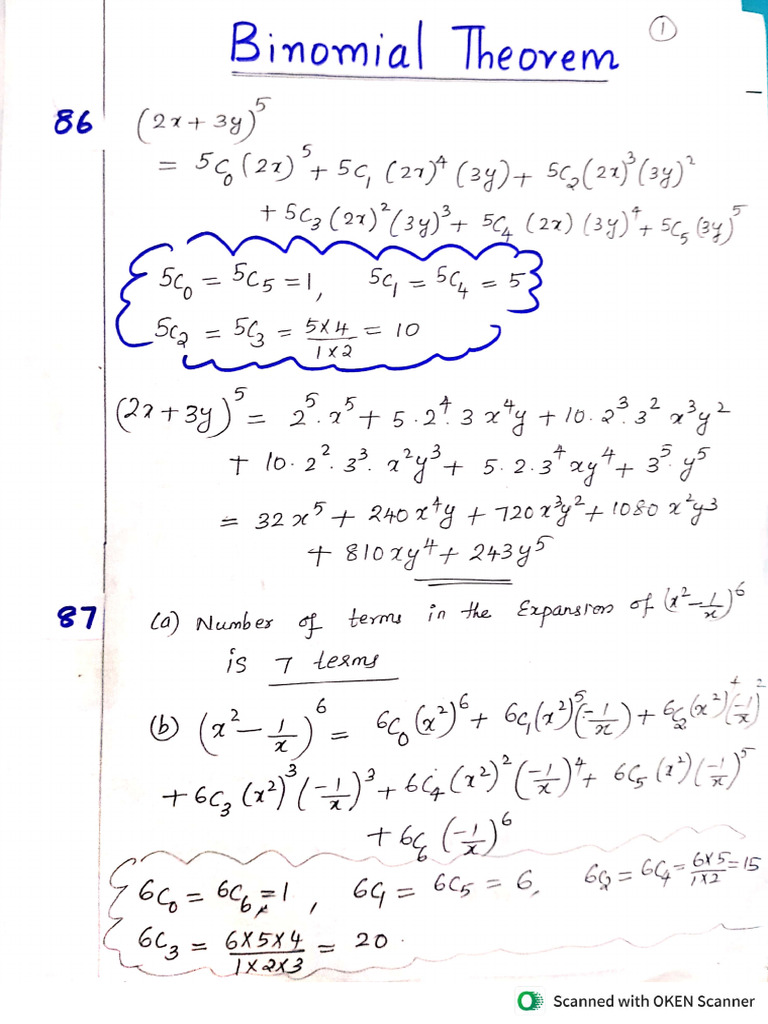 Binomial Theorem ①
86 (2x + 3y)⁵
= 5C₀ (2x)⁵ + 5C₁ (2x)⁴ (3y) + 5C₂ (2x)³ (3y)²
+ 5C₃ (2x)² (3y)³ + 5C₄ (2x) (3y)⁴ + 5C₅ (3y)⁵
5C₀ = 5C₅ = 1, 5C₁ = 5C₄ = 5
5C₂ = 5C₃ = 5×4/1×2 = 10
(2x + 3y)⁵ = 2⁵. x⁵ + 5 . 2⁴. 3 x⁴y + 10. 2³. 3² x³y²
+ 10. 2². 3³. x²y³ + 5. 2. 3⁴ xy⁴ + 3⁵. y⁵
= 32x⁵ + 240x⁴y + 720x³y² + 1080 x²y³
+ 810xy⁴ + 243y⁵
87 (a) Number of terms in the Expansion of (x² - 1/x)⁶
is 7 terms
(b) (x² - 1/x)⁶ = 6C₀ (x²)⁶ + 6C₁ (x²)⁵ (-1/x) + 6C₂ (x²)⁴ (-1/x)²
+ 6C₃ (x²)³ (-1/x)³ + 6C₄ (x²)² (-1/x)⁴ + 6C₅ (x²) (-1/x)⁵
+ 6C₆ (-1/x)⁶
6C₀ = 6C₆ = 1, 6C₁ = 6C₅ = 6, 6C₂ = 6C₄ = 6×5/1×2 = 15
6C₃ = 6×5×4/1×2×3 = 20.
Scanned with OKEN Scanner